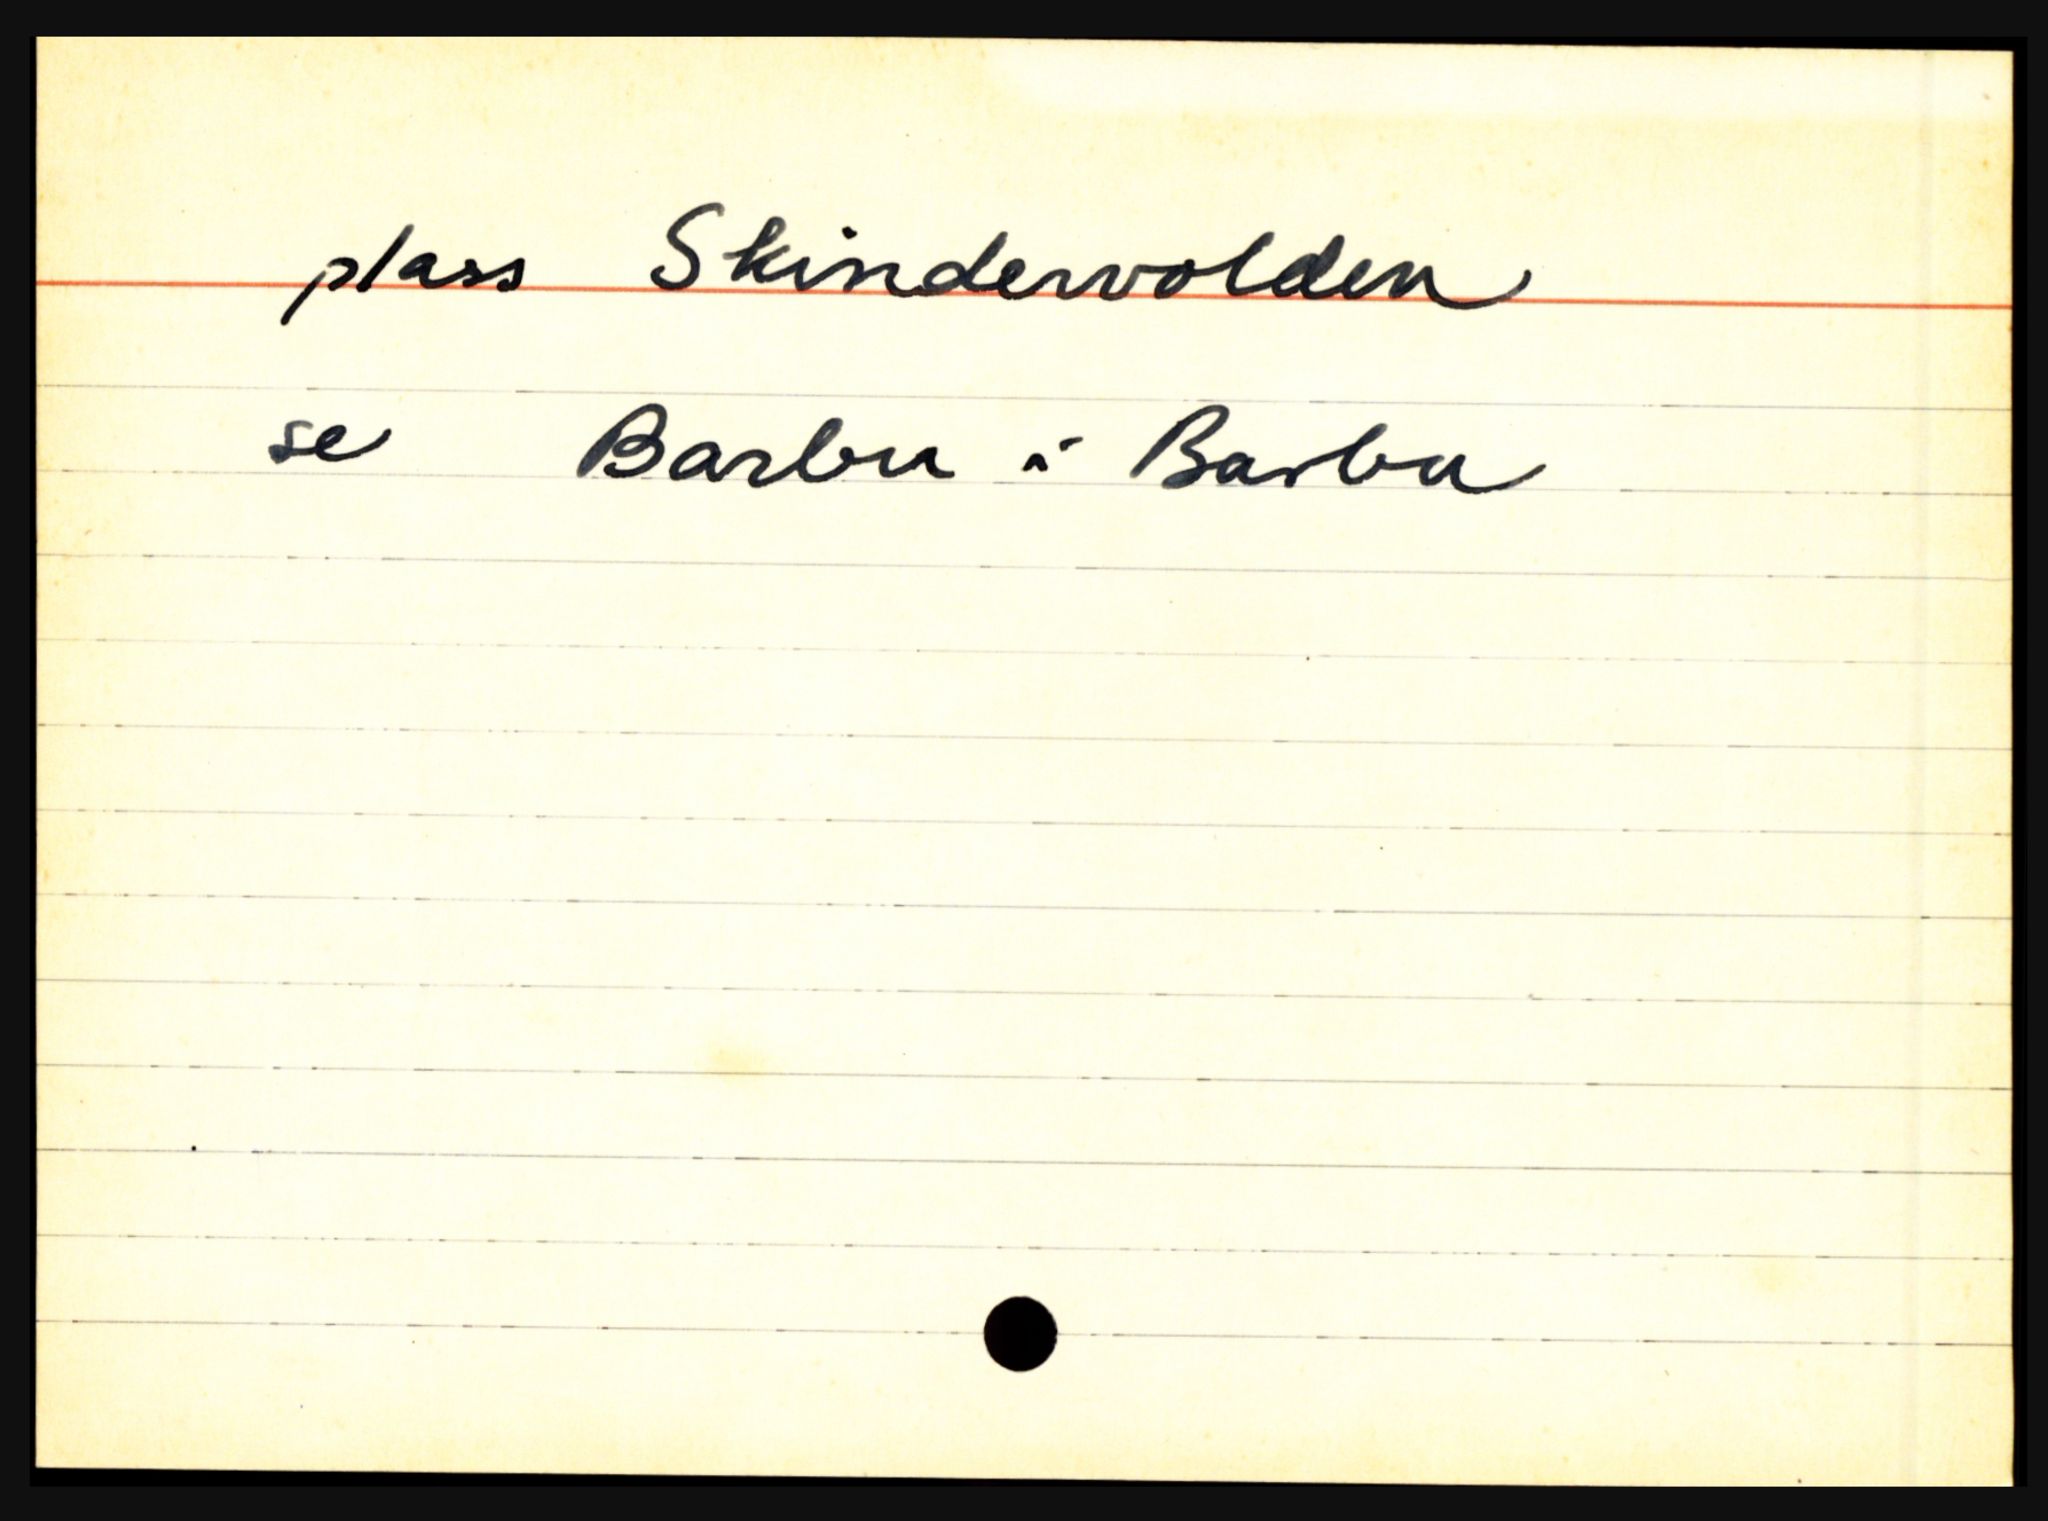 plass Skindervolden
se Barbu i Barbu